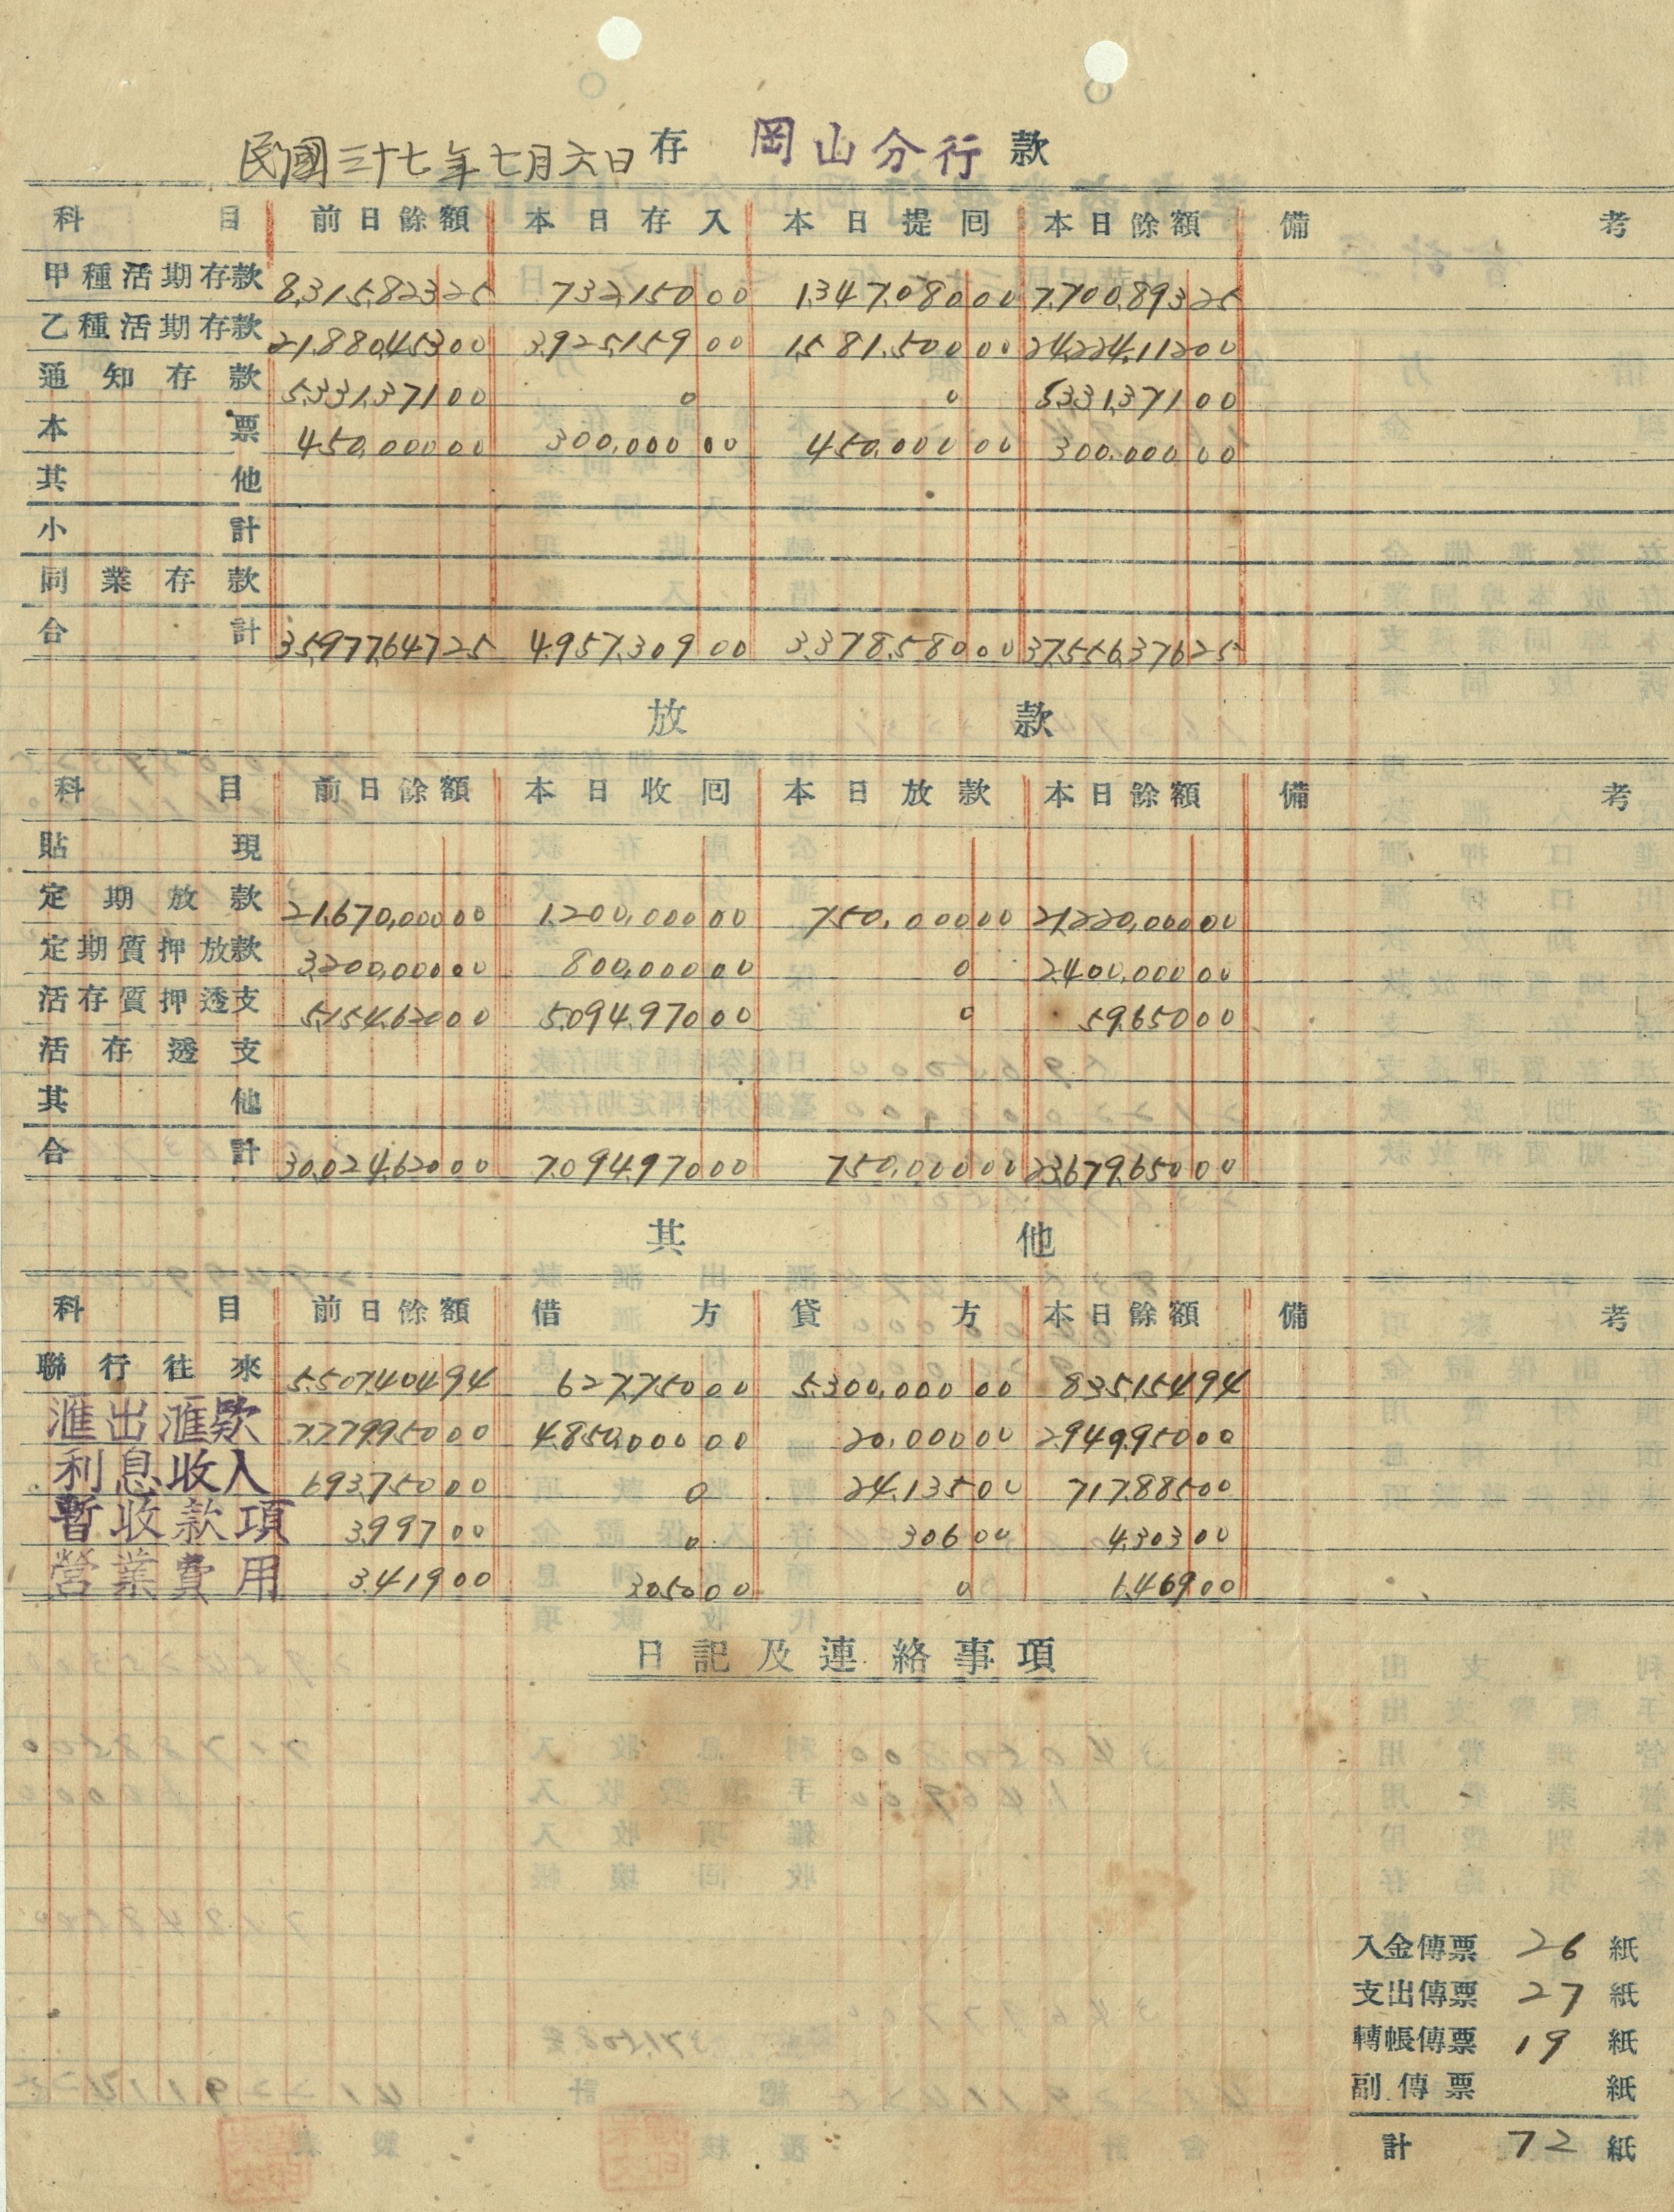 民國三十七年七月六日 存 岡山分行 款
科目 前日餘額 本日存入 本日提囘 本日餘額 備考
甲種活期存款 8,315,823 25 732,150 00 1,347,080 00 7,700,893 25
乙種活期存款 21,880,453 00 3,925,159 00 1,581,500 00 24,224,112 00
通知存款 5,331,371 00 0 0 5,331,371 00
本票 450,000 00 300,000 00 450,000 00 300,000 00
其他
小計
同業存款
合計 35,977,647 25 4,957,309 00 3,378,580 00 37,556,376 25
放款
科目 前日餘額 本日收囘 本日放款 本日餘額 備考
貼現
定期放款 21,670,000 00 1,200,000 00 750,000 00 21,220,000 00
定期質押放款 3,200,000 00 800,000 00 0 2,400,000 00
活存質押透支 5,154,620 00 5,094,970 00 0 59,650 00
活存透支
其他
合計 30,024,620 00 7,094,970 00 750,000 00 23,679,650 00
其他
科目 前日餘額 借方 貸方 本日餘額 備考
聯行往來 5,507,404 94 627,750 00 5,300,000 00 835,154 94
滙出滙款 7,779,950 00 4,850,000 00 20,000 00 2,949,950 00
利息收入 693,750 00 0 24,135 00 717,885 00
暫收款項 3,997 00 0 306 00 4,303 00
營業費用 3,419 00 3,050 00 0 1,469 00
日記及連絡事項
入金傳票 26 紙
支出傳票 27 紙
轉帳傳票 19 紙
副傳票 紙
計 72 紙